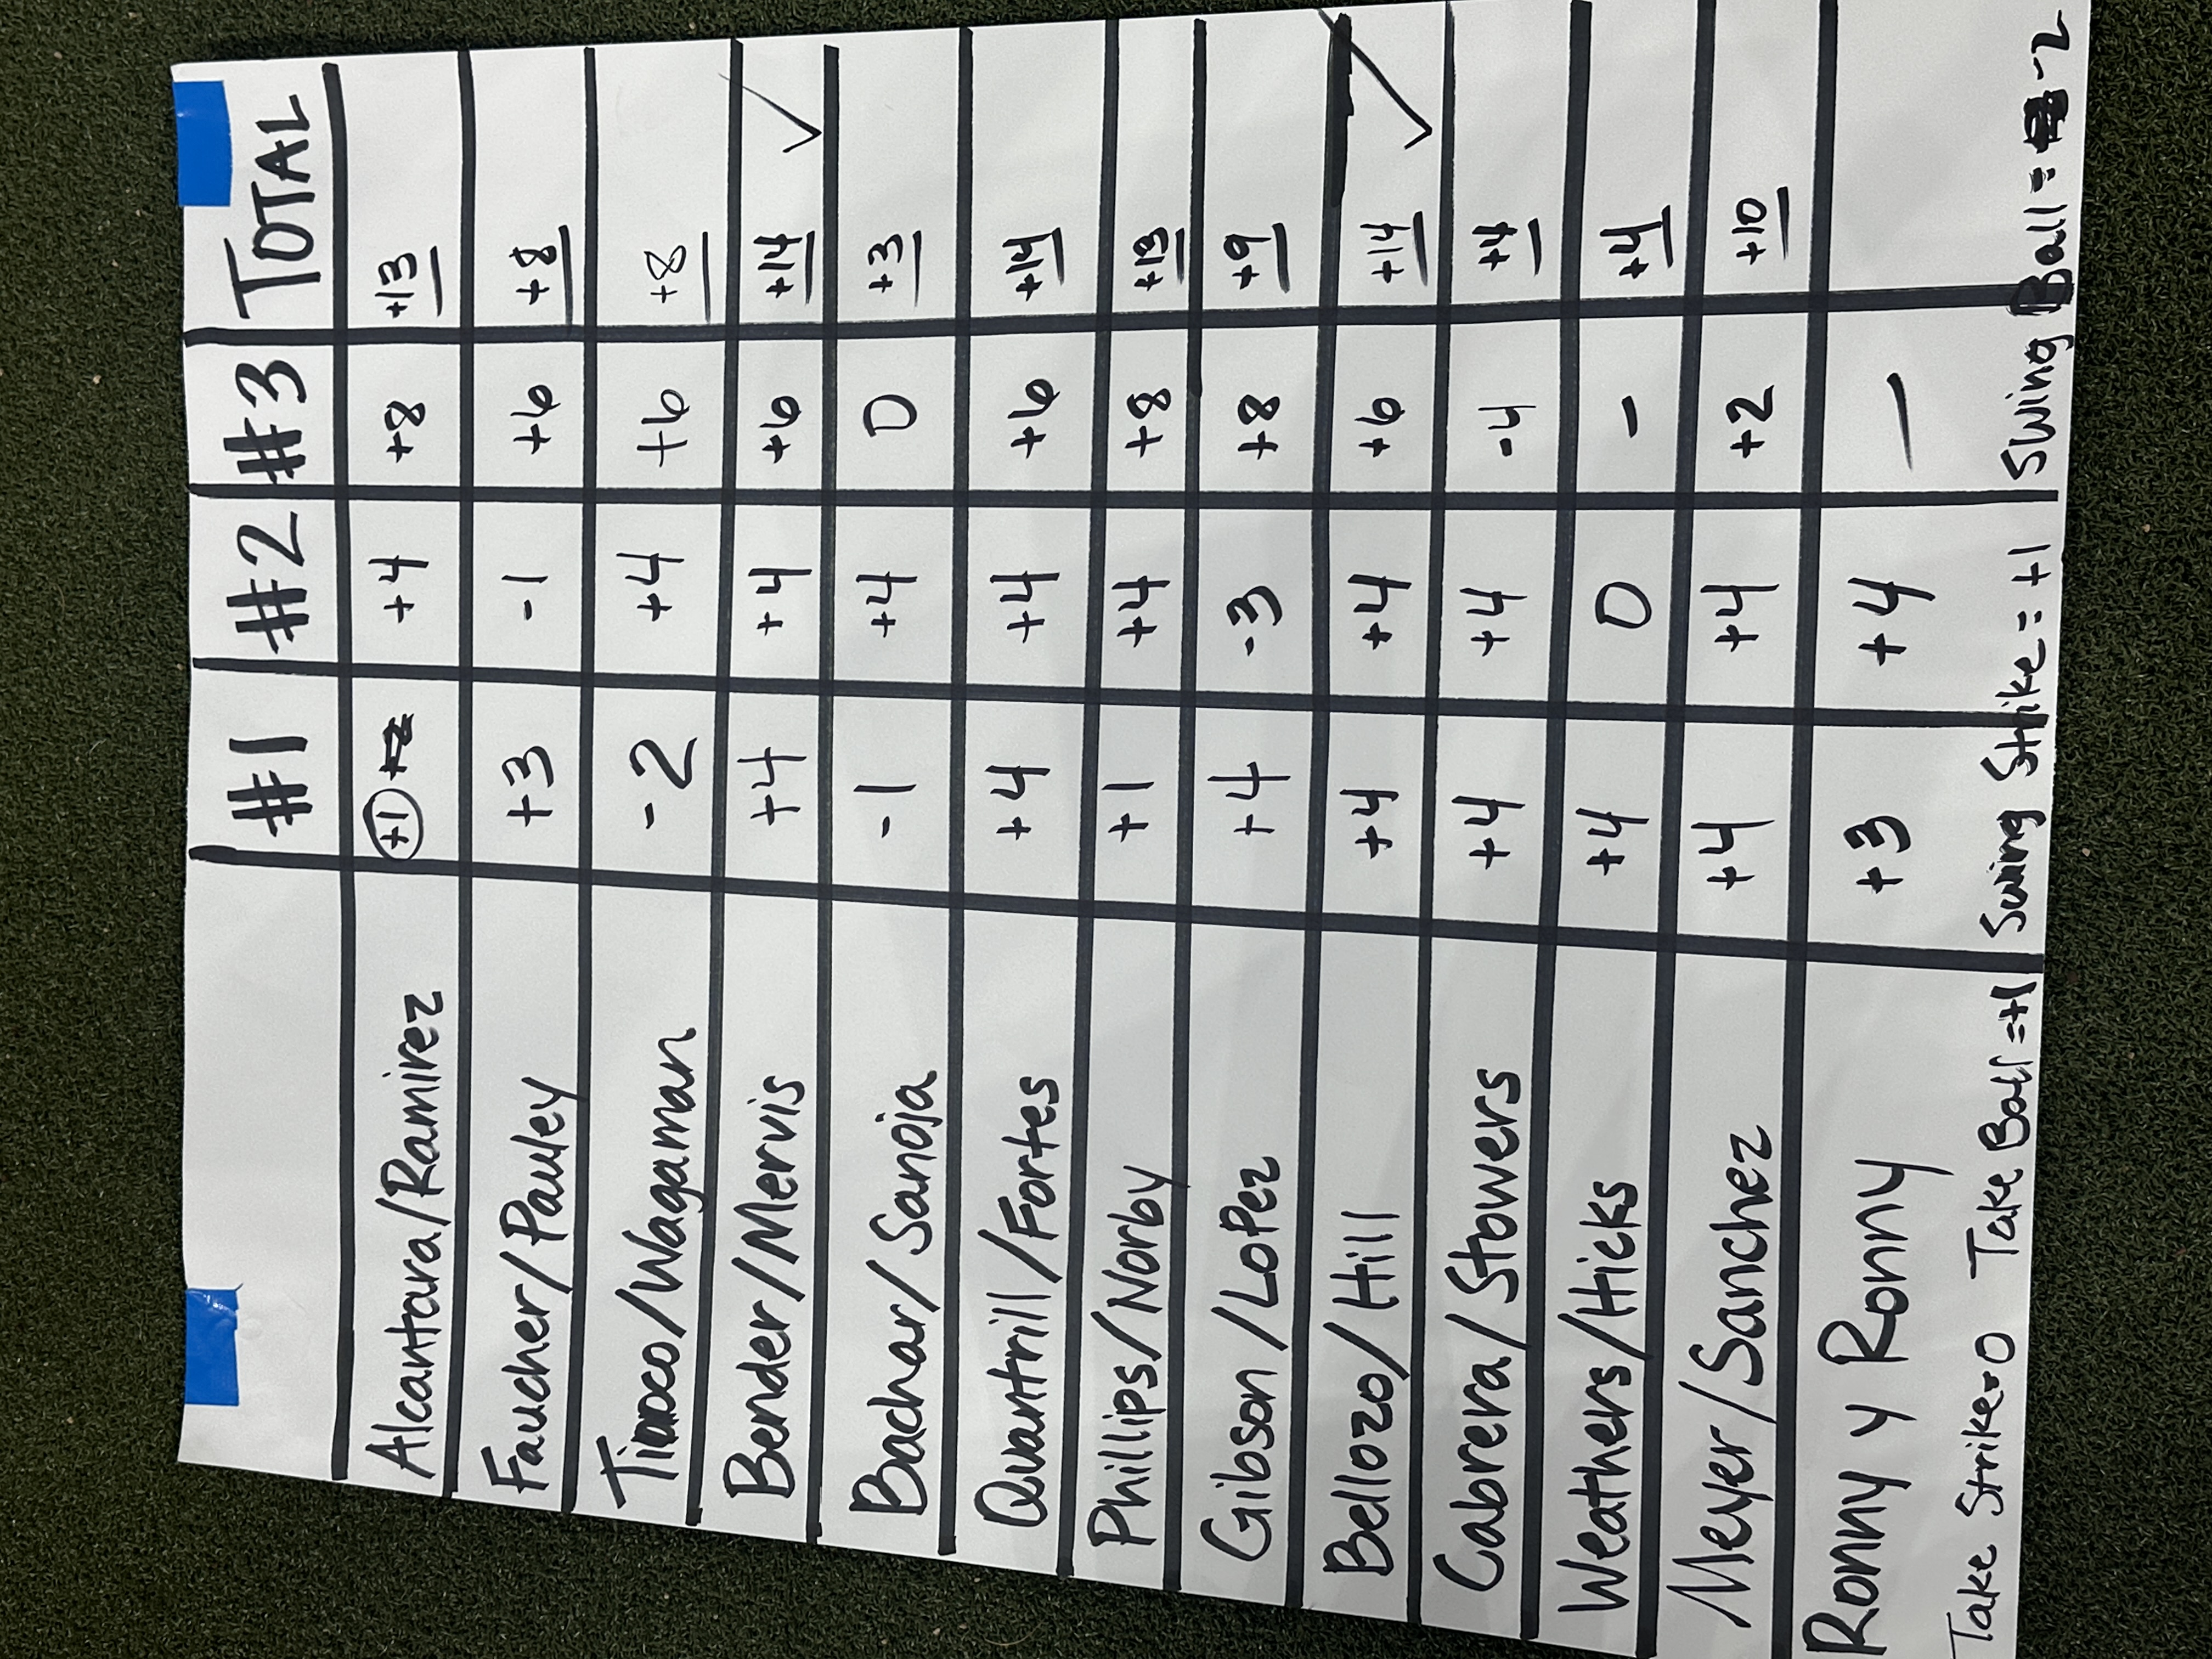 #1 #2 #3 TOTAL
Alcantara/Ramirez +1 +4 +8 +13
Faucher/Pauley +3 -1 +6 +8
Tinoco/Wagaman -2 +4 +6 +8
Bender/Mervis +4 +4 +6 +14
Bachar/Sanoja -1 +4 0 +3
Quantrill/Fortes +4 +4 +6 +14
Phillips/Norby +1 +4 +8 +13
Gibson/Lopez +4 -3 +8 +9
Bellozo/Hill +4 +4 +6 +14
Cabrera/Stowers +4 +4 -4 +4
Weathers/Hicks +4 0 - +4
Meyer/Sanchez +4 +4 +2 +10
Ronny y Ronny +3 +4 -
Take Strike=0 Take Ball=+1 Swing Strike=+1 Swing Ball=-2